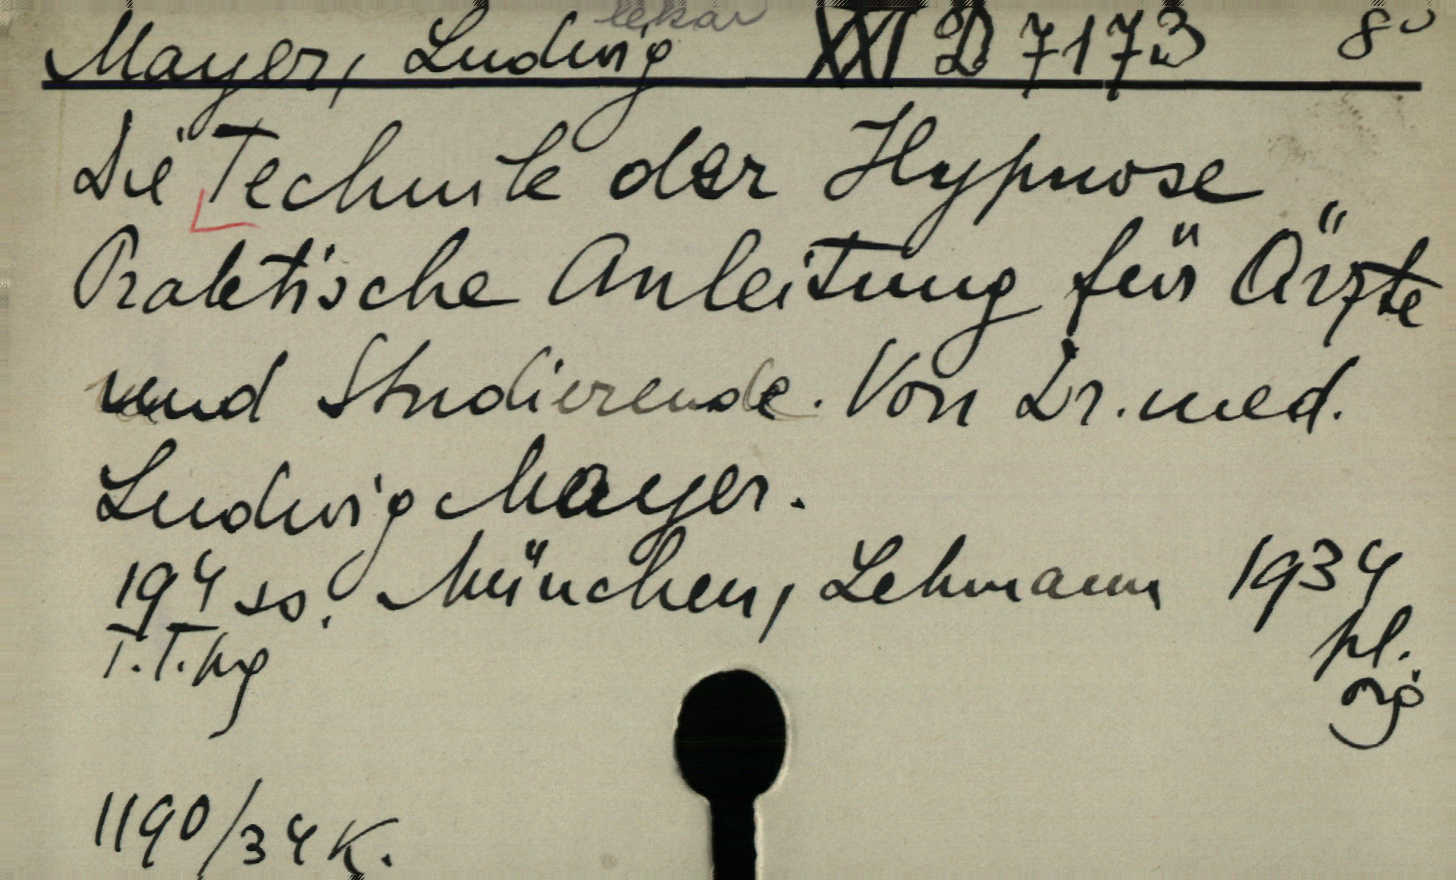 lékař
Mayer, Ludwig XXI D 7173 8°
Die Technik der Hypnose
Praktische Anleitung für Ärzte
und Studierende. Von Dr. med.
Ludwig Mayer.
194 ss. München, Lehmann 1934
T. T. pl.
1190/34 K.